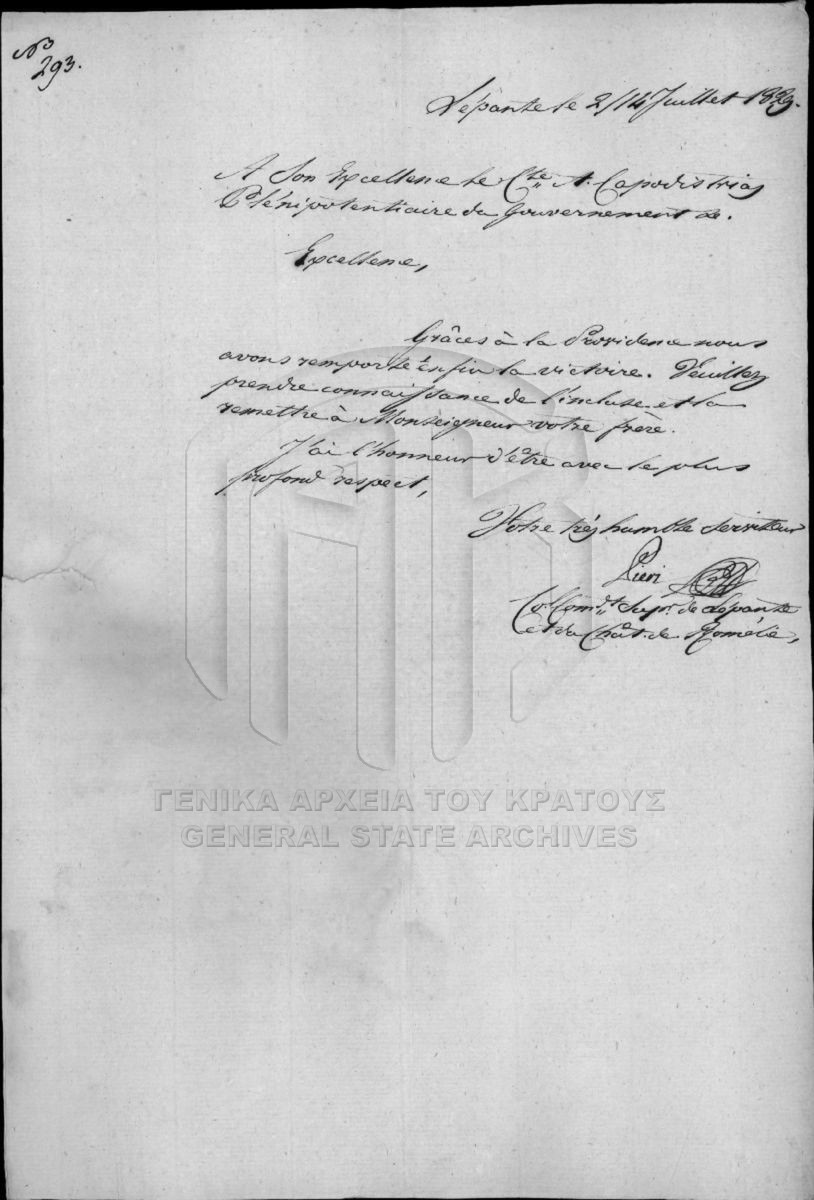 No
293.
Lépante le 2/14 Juillet 1829.
A Son Excellence le Cte A. Capodistrias
Plénipotentiaire du Gouvernement &.
Excellence,
Grâces à la Providence nous
avons remporté enfin la victoire. Veuillez
prendre connaissance de l'incluse et la
remettre à Monseigneur votre frère.
J'ai l'honneur d'être avec le plus
profond respect,
Votre très humble serviteur
Pieri
Col. Comdt. Supr. de Lépante
et du Chât. de Romélie,
ΓΕΝΙΚΑ ΑΡΧΕΙΑ ΤΟΥ ΚΡΑΤΟΥΣ
GENERAL STATE ARCHIVES